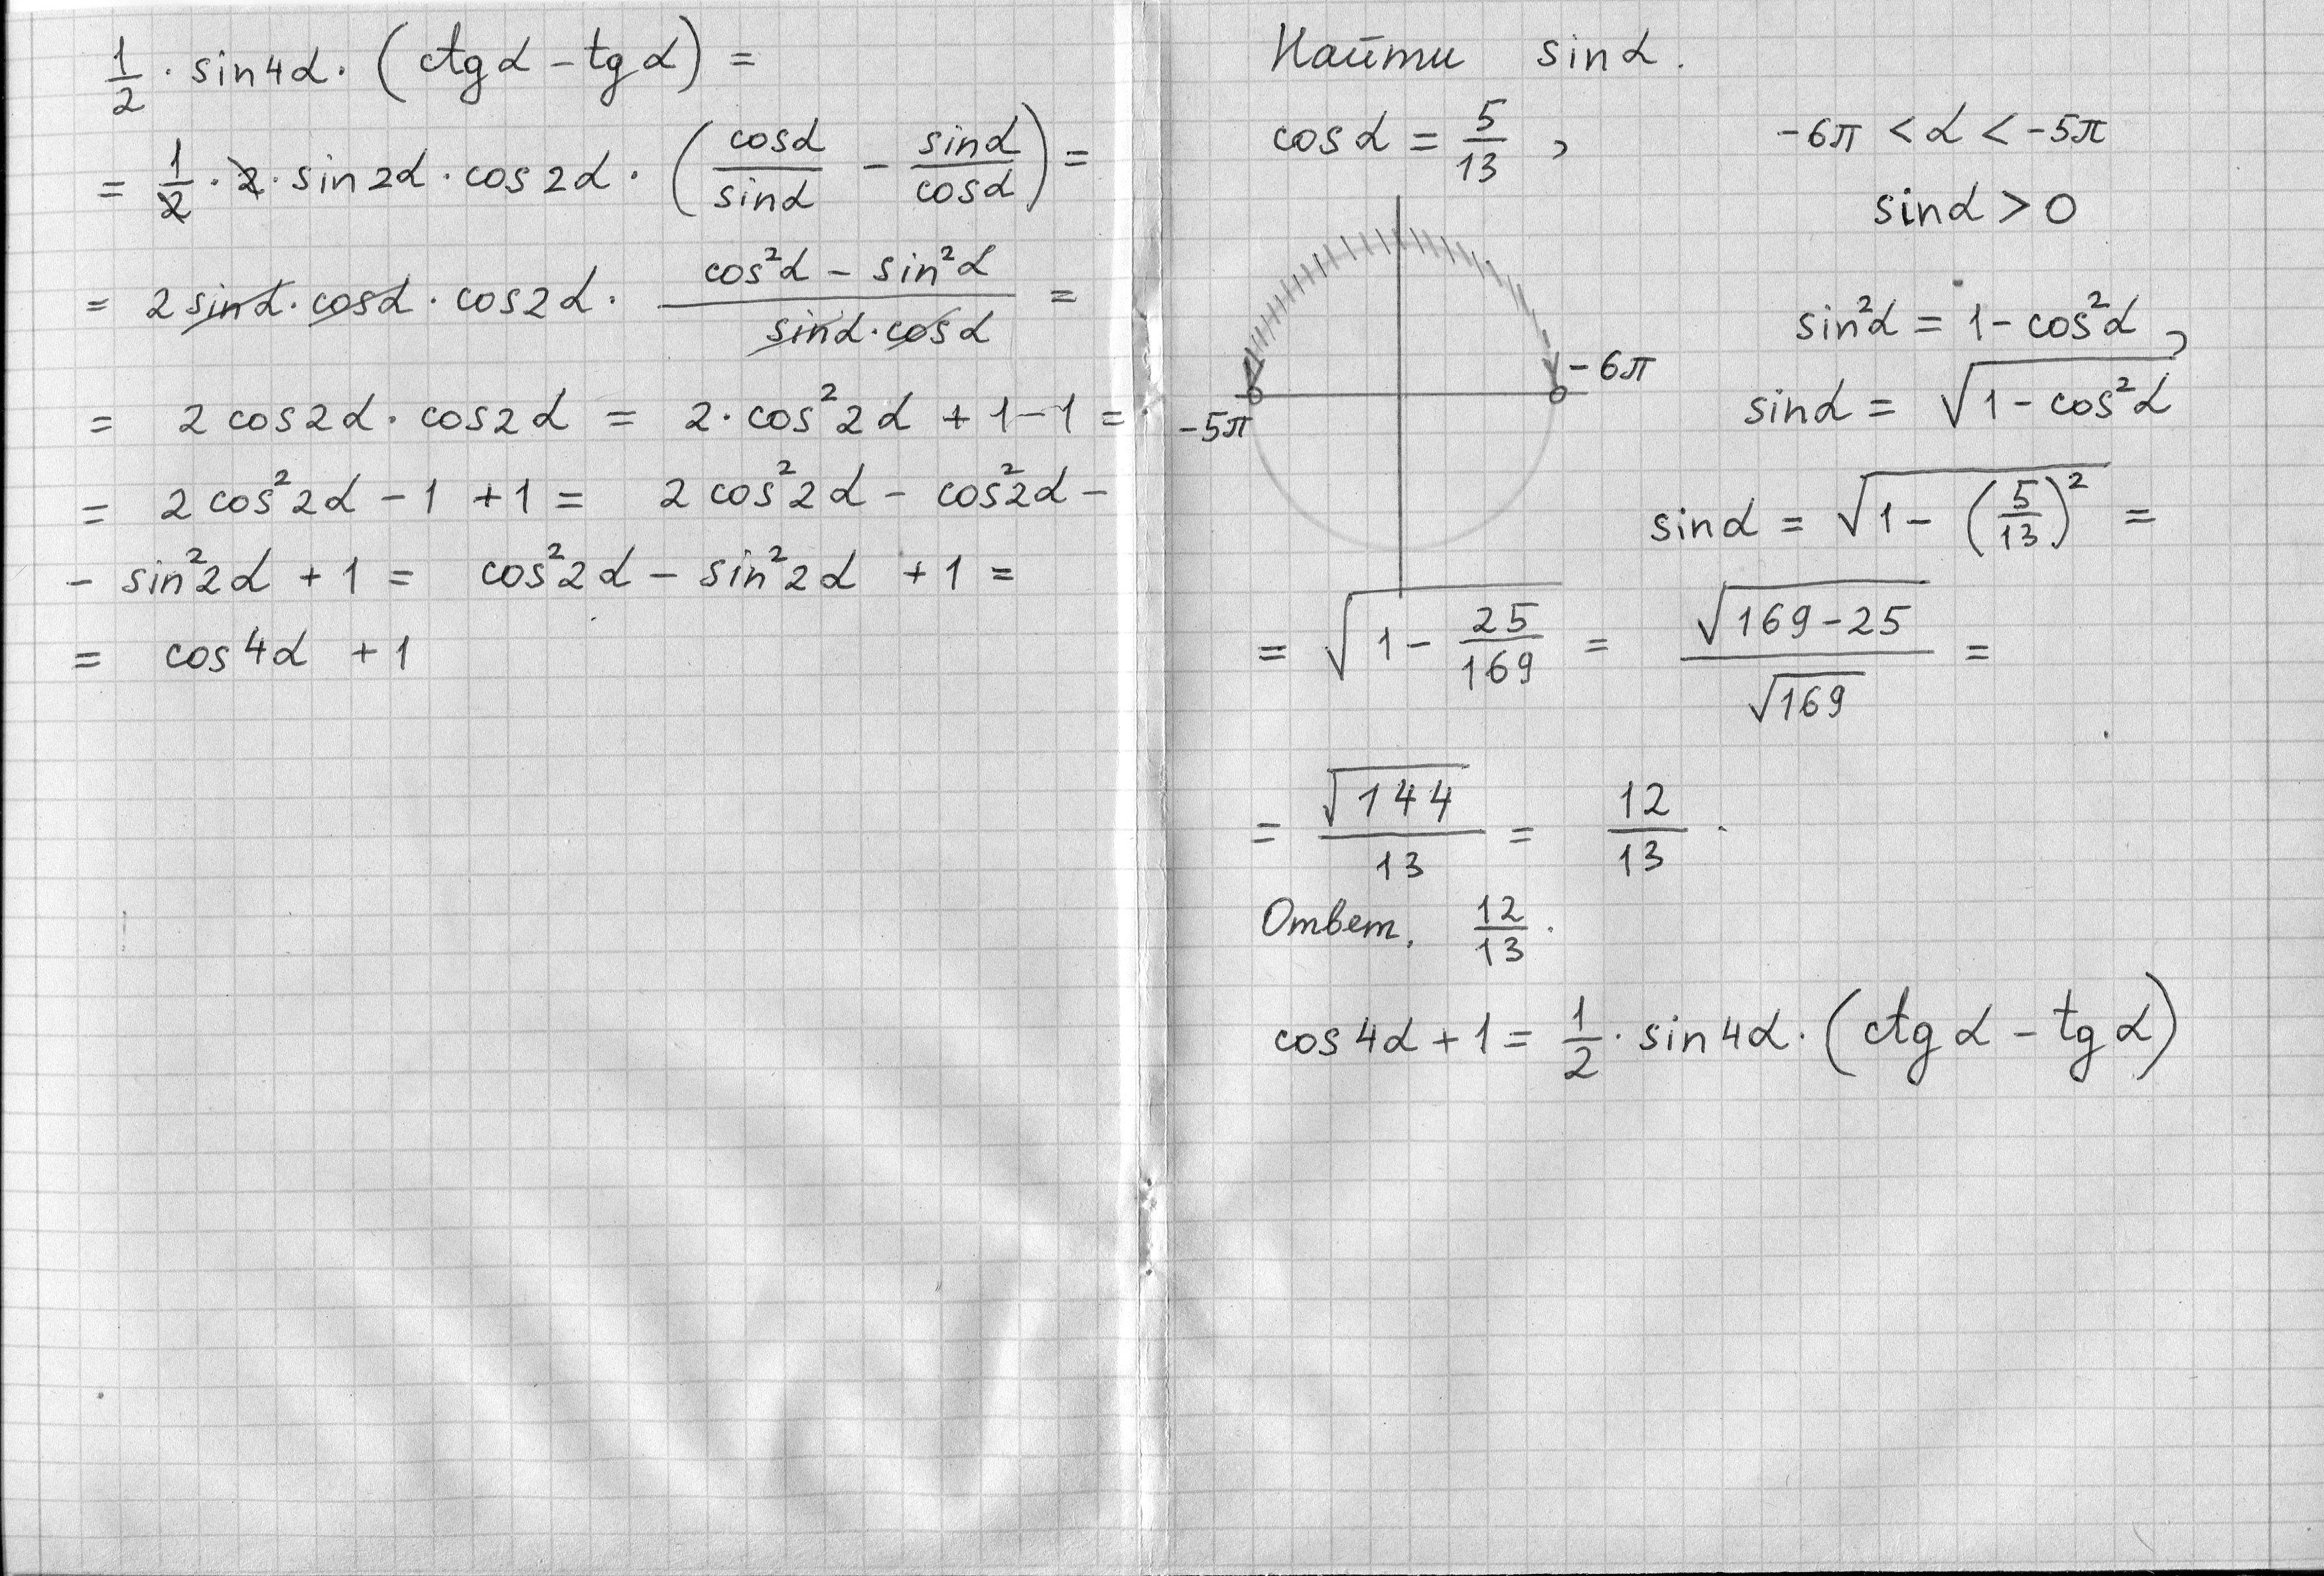 1/2 · sin4α · (ctgα − tgα) =
= 1/2 · 2 · sin2α · cos2α · (cosα/sinα − sinα/cosα) =
= 2sinα · cosα · cos2α · (cos²α − sin²α)/(sinα · cosα) =
= 2cos2α · cos2α = 2 · cos²2α + 1 − 1 =
= 2cos²2α − 1 + 1 = 2cos²2α − cos²2α −
− sin²2α + 1 = cos²2α − sin²2α + 1 =
= cos4α + 1
Найти sinα.
cosα = 5/13, −6π < α < −5π
sinα > 0
sin²α = 1 − cos²α,
−6π
−5π
sinα = √(1 − cos²α)
sinα = √(1 − (5/13)²) =
= √(1 − 25/169) = √(169 − 25)/√169 =
= √144/13 = 12/13.
Ответ. 12/13.
cos4α + 1 = 1/2 · sin4α · (ctgα − tgα)